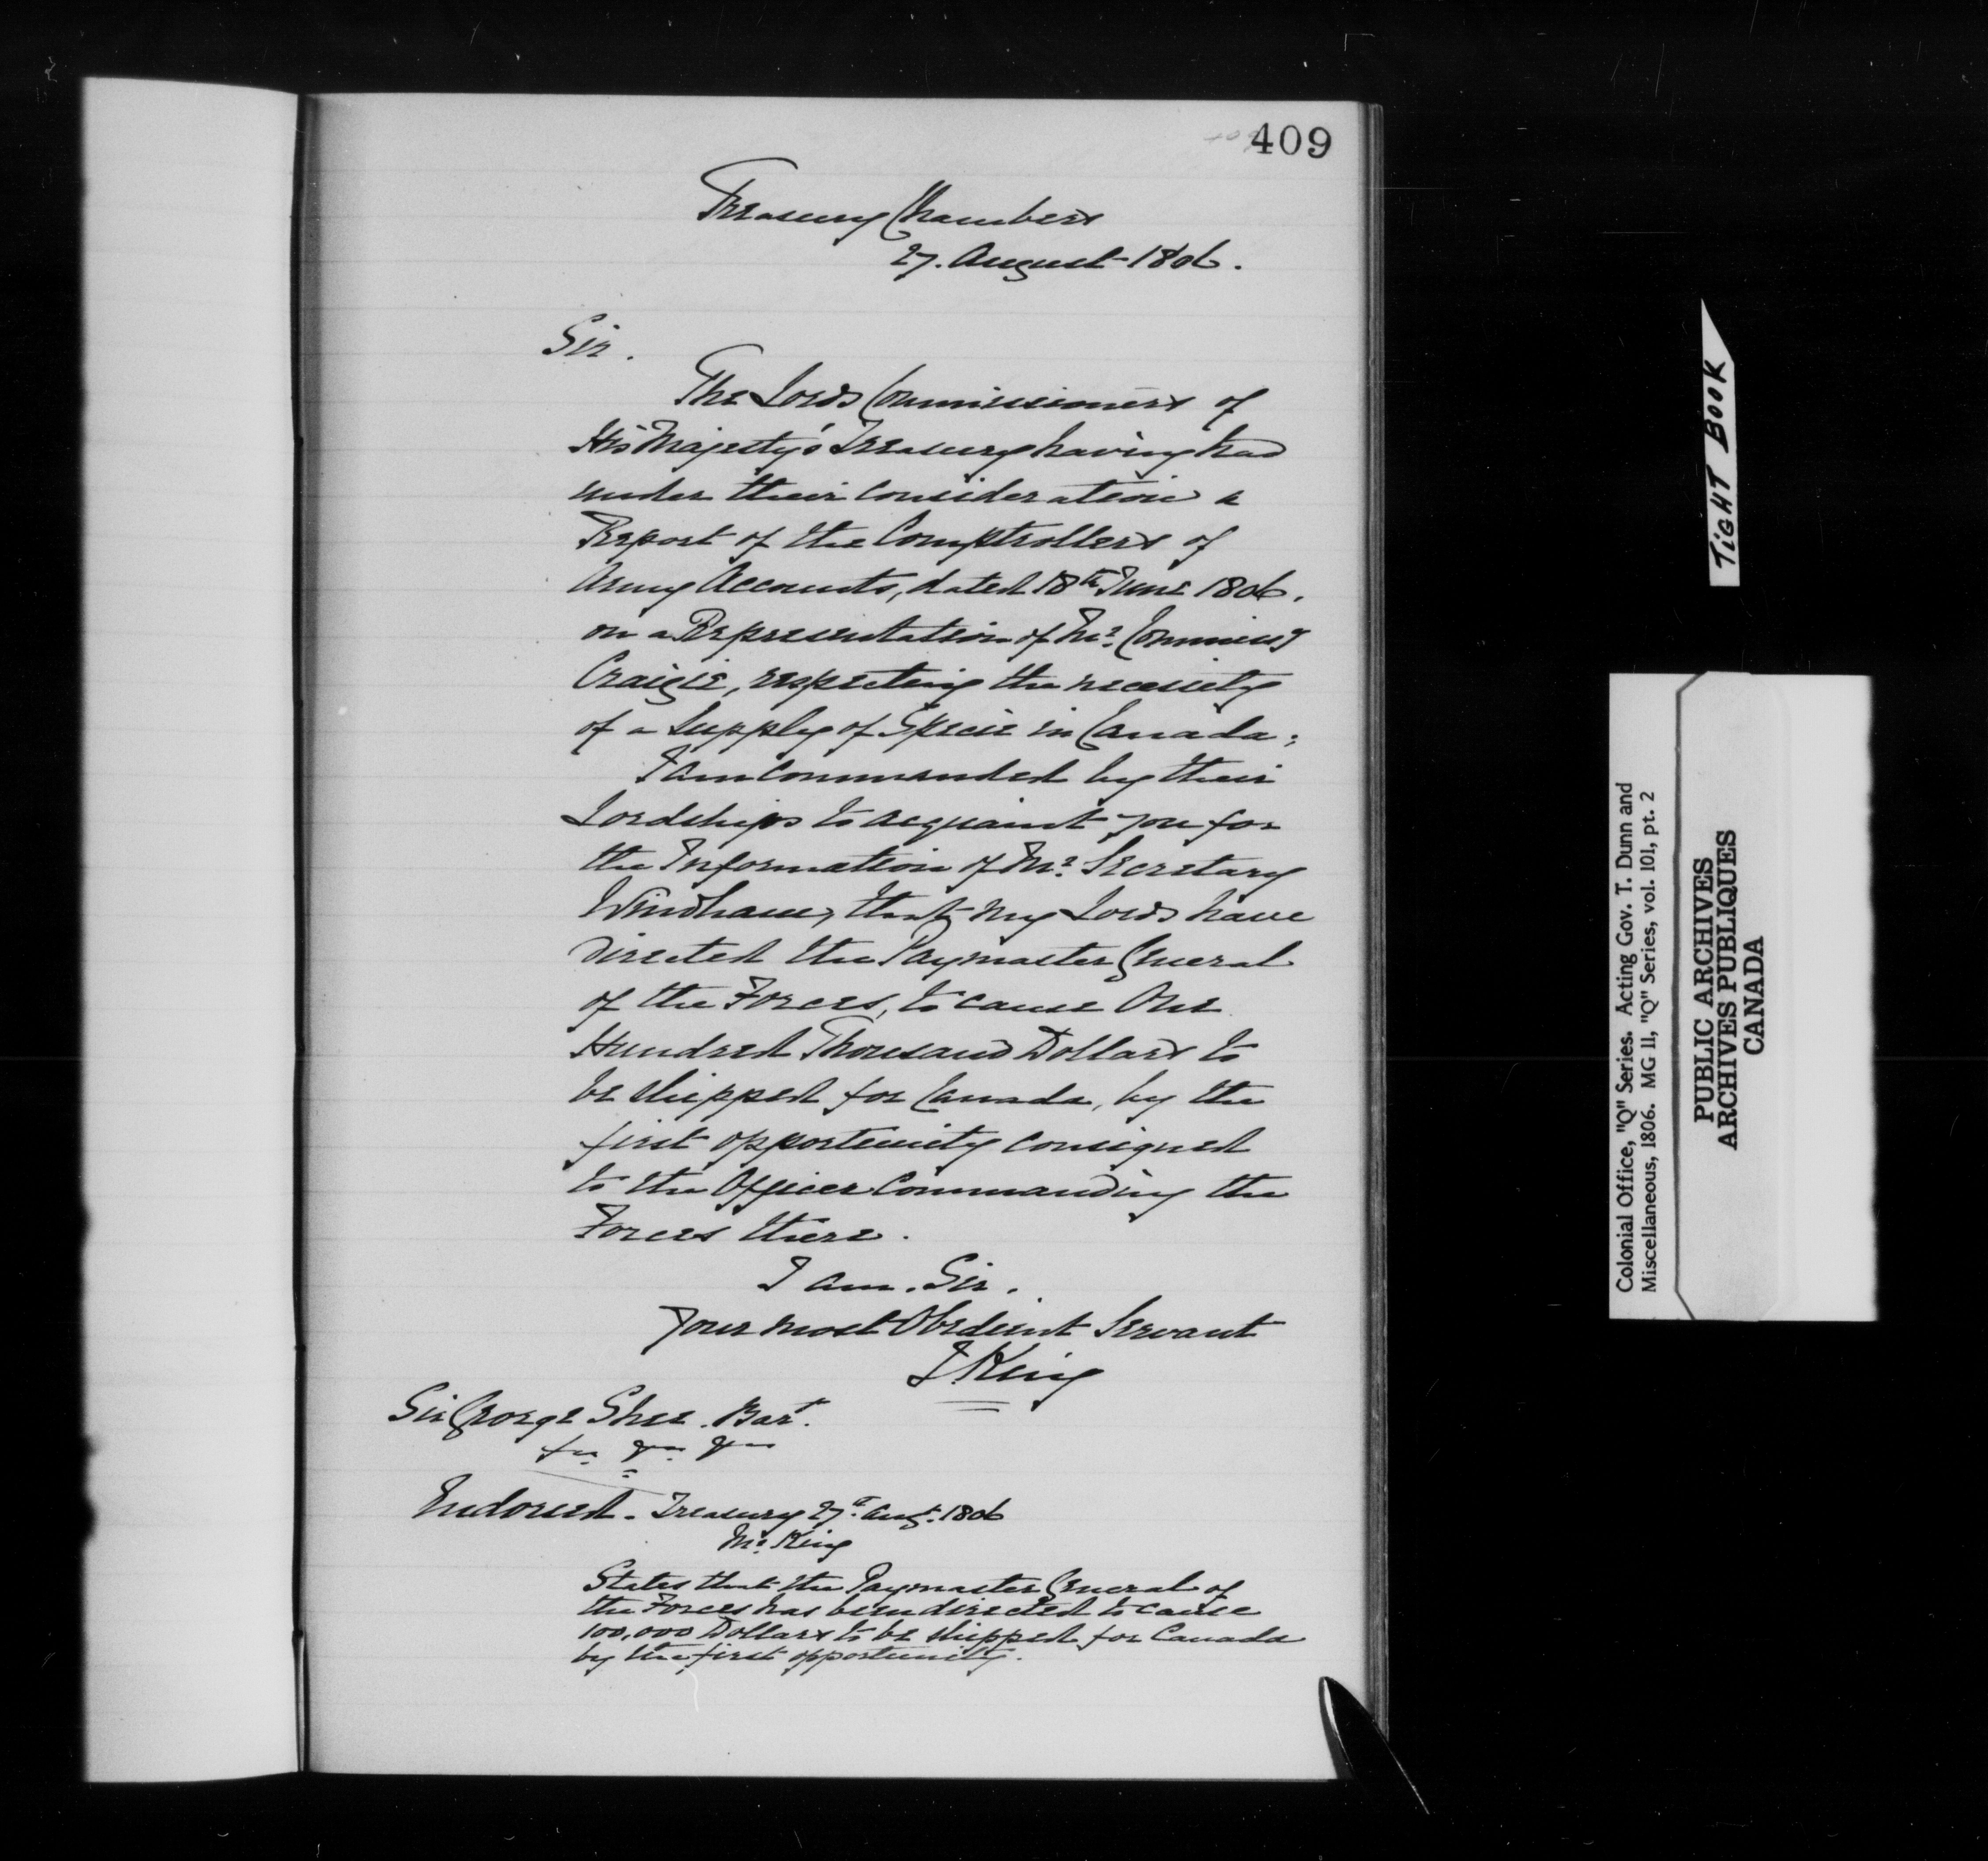 409
Treasury Chambers
27. August 1806.
Sir.
The Lords Commissioners of
His Majesty's Treasury having had
under their consideration a
Report of the Comptrollers of
Army Accounts, dated 18th June 1806.
on a Representation of Mr. Commissy
Craigie, respecting the necessity
of a Supply of Specie in Canada;
I am commanded by their
Lordships to acquaint you for
the Information of Mr. Secretary
Windham, that my Lords have
directed the Paymaster General
of the Forces, to cause One
Hundred Thousand Dollars to
be shipped for Canada, by the
first opportunity consigned
to the Officer Commanding the
Forces there.
I am. Sir.
Your most Obedient Servant
J King
Sir George Shee. Bart.
Endorsed. Treasury 27th. Aug. 1806
Mr. King
States that the Paymaster General of
the Forces has been directed to cause
100,000 Dollars to be shipped for Canada
by the first opportunity.
TIGHT BOOK
Colonial Office, "Q" Series. Acting Gov. T. Dunn and
Miscellaneous, 1806. MG 11, "Q" Series, vol. 101, pt. 2
PUBLIC ARCHIVES
ARCHIVES PUBLIQUES
CANADA